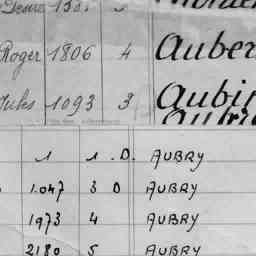 Roger 1806 4 Auber
Jules 1093 3 Aubin
1 1 . D. AUBRY
1.047 3 D AUBRY
1973 4 AUBRY
2180 5 AUBRY